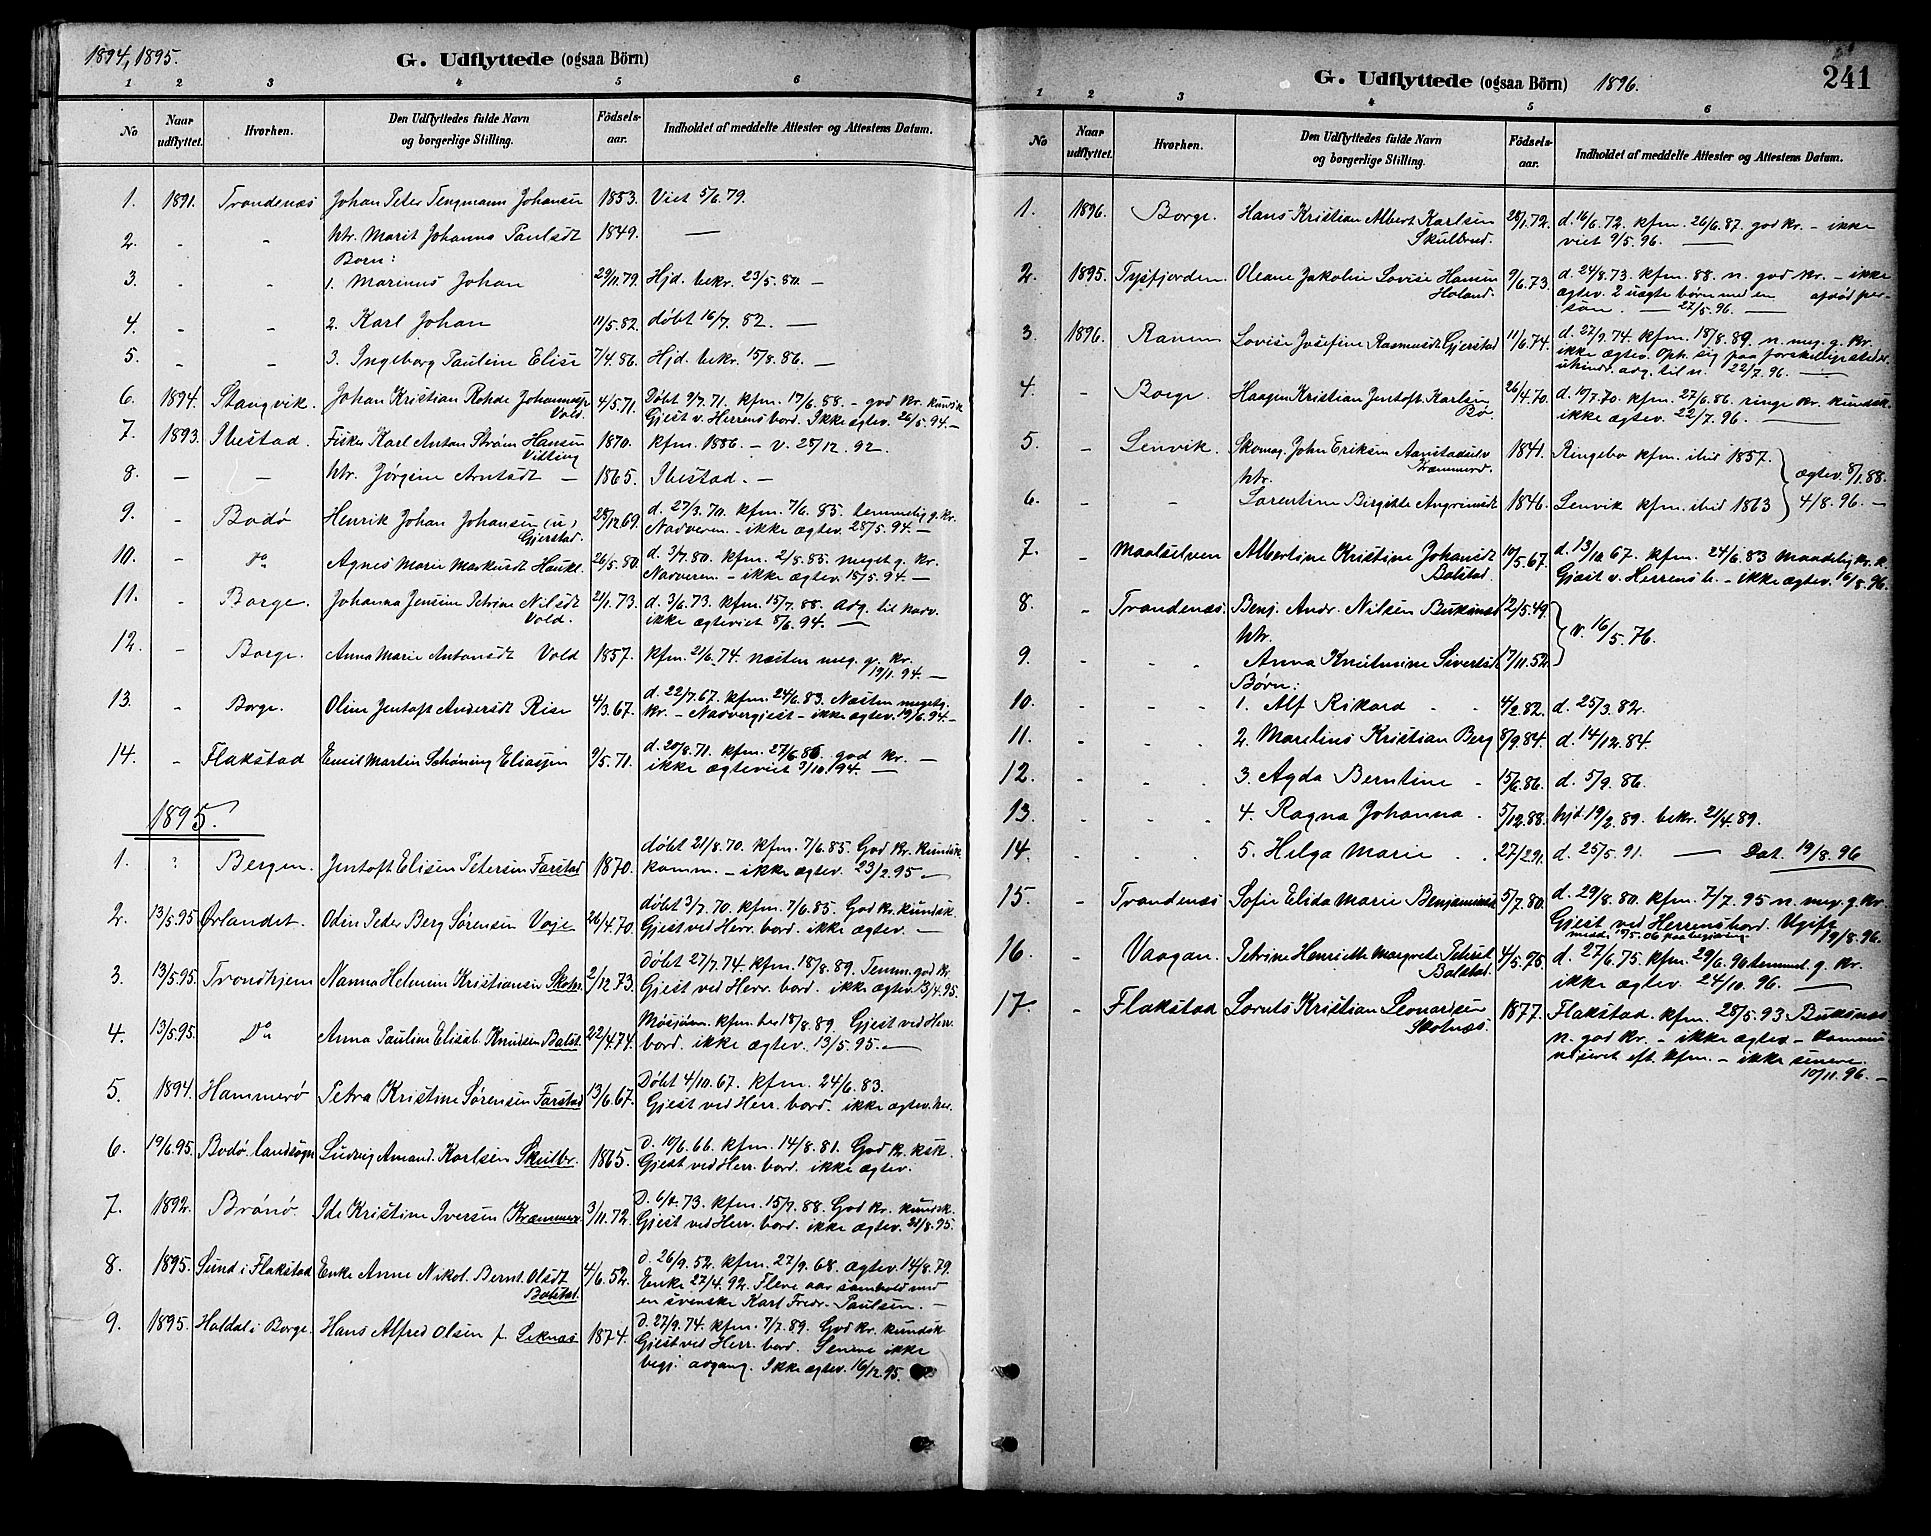 1894, 1895.
G. Udflyttede (ogsaa Börn)
1 2 3 4 5 6
No
Naar udflyttet.
Hvorhen.
Den Udflyttedes fulde Navn og borgerlige Stilling.
Födsels-aar.
Indholdet af meddelte Attester og Attestens Datum.
1. 1891. Trondenæs Johan Peter Tengmann Johansen 1853. Viet 5/6.79.
2. - - htr. Marit Johanna Paulsdt 1849. —
Born:
3. - - 1. Marinus Johan 29/11.79. Hjd. bekr. 23/5.80. -
4. - - 2. Karl Johan 11/5.82. døbt 16/7. 82. —
5. - - 3. Ingeborg Pauline Elise 7/4.86. Hjd. bekr. 15/8.86. -
6. 1894. Stangvik. Johan Kristian Rohde Johannesen 4/5.71. Døbt 9/7.71. kfm. 17/6.88. - god kr. kundsk
Vold. Gjest v. Herrens bord. Ikke ægtev. 26/5.94.-
7. 1893. Ibestad. Fisker Karl Anton Strøm Hansen 1870. kfm. 1886. - V. 28/12. 92.
8. — — htr. Jørgine Arntsdt — 1865. Ibestad. -
9. - Bodø Henrik Johan Johansen (u) 28/12.69. d. 27/3.70. kfm. 7/6.85. temmelig g. kr.
Gjerstad. Nadveren - ikke ægtev. 28/5.94. -
10. - do Agnes Marie Markusdt Haukl. 26/5.80. d. 3/7.80. kfm. 2/5.85. meget g. kr.
Nadveren - ikke ægtev. 15/5.94. -
11. - Borge. Johanna Jensine Petrine Nilsdt 21/1.73. d. 3/6.73. kfm. 15/7.88. adg. til nadv.
Vold. ikke ægteviet 8/6.94. —
12. - Borge. Anna Marie Antonsdt Vold 1857. kfm. 21/6.74. næsten meg. g. kr.
19/1.94. -
13. - Borge. Oline Jentoft Andersdt Rise 4/3.67. d. 22/7.67. kfm. 24/6.83. Næsten meget g.
kr. - Nadvergjest - ikke ægtev. 19/6.94 -
14. - Flakstad Emil Martin Schøning Eliassen 9/5.71. d. 20/8.71. kfm. 27/6.86 god kr. -
ikke ægteviet 3/10.94. —
1895.
1. ? Bergen. Jentoft Elisen Petersen Farstad 1870. døbt 21/8.70. kfm. 7/6.85. God kr. kundsk
komm. - ikke ægtev. 23/2.95 -
2. 13/5.95 Ørlandet. Odin Peder Berg Sørensen Voje 26/4.70. døbt 3/7.70. kfm. 7/6.85. God kr. kundsk.
Gjest ved Herr. bord. ikke ægtev. -
3. 13/5.95. Trondhjem Nanna Helmine Kristiansen 2/12.73. Døbt 27/7.74. kfm. 18/8.89. Temm. god kr.
Gjest ved Herr. bord. ikke ægtev. 13/4.95.
4. 13/5.95. Do Anna Pauline Elisab. Knudsen Balst. 22/4.74. Mosjøen. kfm. her 18/8.89. Gjest ved Herr.
bord. ikke ægtev. 13/5.95. -
5. 1894. Hammerø Petra Kristine Sørensen Farstad 13/6.67. Døbt 4/10.67. kfm. 24/6.83.
Gjest ved Herr. bord. ikke ægtev. her.
6. 19/6.95. Bodø landsogn Ludvig Amand. Karlsen Skulbr. 1865. D. 10/6.66. kfm. 14/8.81. God k. ksk.
Gjest ved Herr. bord. ikke ægtev.
7. 1892. Brønø. Ide Kristine Iversen Kræmmer 3/11.72. D. 73. kfm. 15/7.88. God kr. kundsk.
Gjest ved Herr. bord. ikke ægtev. 21/8.95.
8. 1895. Sund i Flakstad Enke Anne Nikol. Bernt. Olsdt 4/6.52. D. 26/9.52. kfm. 27/9.68. ægtev. 14/8.79.
Balstad. Enke 27/4.92. Flere aar samhold med
en svenske Karl Fredr. Paulsen. -
9. 1895. Haldal i Borge. Hans Alfred Olsen f. Leknæs 1874. D. 27/9.74. kfm. 7/7.89. God kr. kundsk
Gjest ved Herr. bord. Senere ikke
begj. adgang. Ikke ægtev. 16/12.95.
G. Udflyttede (ogsaa Börn) 1896.
241
1 2 3 4 5 6
No
Naar udflyttet.
Hvorhen.
Den Udflyttedes fulde Navn og borgerlige Stilling.
Födsels-aar.
Indholdet af meddelte Attester og Attestens Datum.
1. 1896. Borge. Hans Kristian Albert Karlsen 28/1.72. d. 16/6.72. kfm. 26/6.87. god kr. - ikke
Skulbrud. viet 9/5.96. —
2. 1895. Tysfjorden. Oleane Jakobine Lovise Hansen 9/6.73. d. 24/8.73. kfm. 88. n. god kr. - ikke
Holand. ægtev. 2 uægte børn med en afdød per-
son. — 27/5.96. —
3. 1896. Ranen Lovise Josefine Rasmusdt Gjerstad 11/6.74. d. 27/9.74. kfm. 18/8.89. n. meg. g. kr.
ikke ægtev. Oph. sig paa forskellige steder.
uhindr. adg. til n. 22/7.96. —
4. - Borge Haagen Kristian Jentoft Karlsen 26/4.70. d. 17/7.70. kfm. 27/6.86 ringe kr. kundsk.
Bø. ikke ægtev. 22/7.96. —
5. - Lenvik. Skomag. John Eriksen 1841. Ringebo kfm. ibid 1857.
htr. ægtev. 8/1.88.
6. - - Lorentine Birgitte 1846. Lenvik kfm. ibid 1863 4/8.96. -
7. - Maalselven Albertine Kristine Johansdt 10/5.67. d. 13/10.67. kfm. 24/6.83 maadelig kr. k.
Balstad. Gjæst v. Herrens b. - ikke ægtev. 16/8.96.
8. - Trondenæs. Benj. Andr. Nilsen Buksnæs 12/5.49.
htr. v. 16/5.76.
9. - - Anna Knutsine Sivertsdt 17/11.52.
Børn:
10. - - 1. Alf Rikard - 4/2.82. d. 25/3.82.
11. - - 2. Marelius Kristian Berg 8/9.84. d. 14/12.84.
12. - - 3. Agda Berntine - 15/6.86. d. 5/9.86.
13. - - 4. Ragna Johanna - 5/12.88. hjd. 19/2.89. bekr. 21/4.89.
14. - - 5. Helga Marie - 27/2 91. d. 25/5.91. — Dat. 19/8.96
15. - Trondenæs Sofie Elida Marie Benjaminsdt 5/7.80. d. 29/8.80. kfm. 7/7.95 n. meg. g. kr.
Gjest ved Herrens bord. Ugift 19/8.96.
16. - Vaagan. Petrine Henriette Margrete Petersdt 4/5.75. d. 27/6.75. kfm. 29/6.90 temmel. g. kr.
Balstad. ikke ægtev. 24/10.96. —
17. - Flakstad Lorents Kristian Leonardsen 1877. Flakstad. kfm. 28/5.93 Buksnæs
Skotnæs. n. god kr. - ikke ægtev - kommu-
niseret eft. kfm. - ikke senere.
10/11.96. -